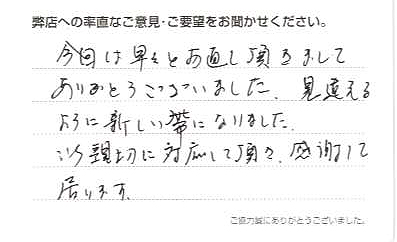 弊店への率直なご意見・ご要望をお聞かせください。
今回は早々とお直し頂きまして
ありがとうございました、見違える
ように新しい帯になりました。
親切に対応して頂き、感謝して
居ります。
ご協力誠にありがとうございました。